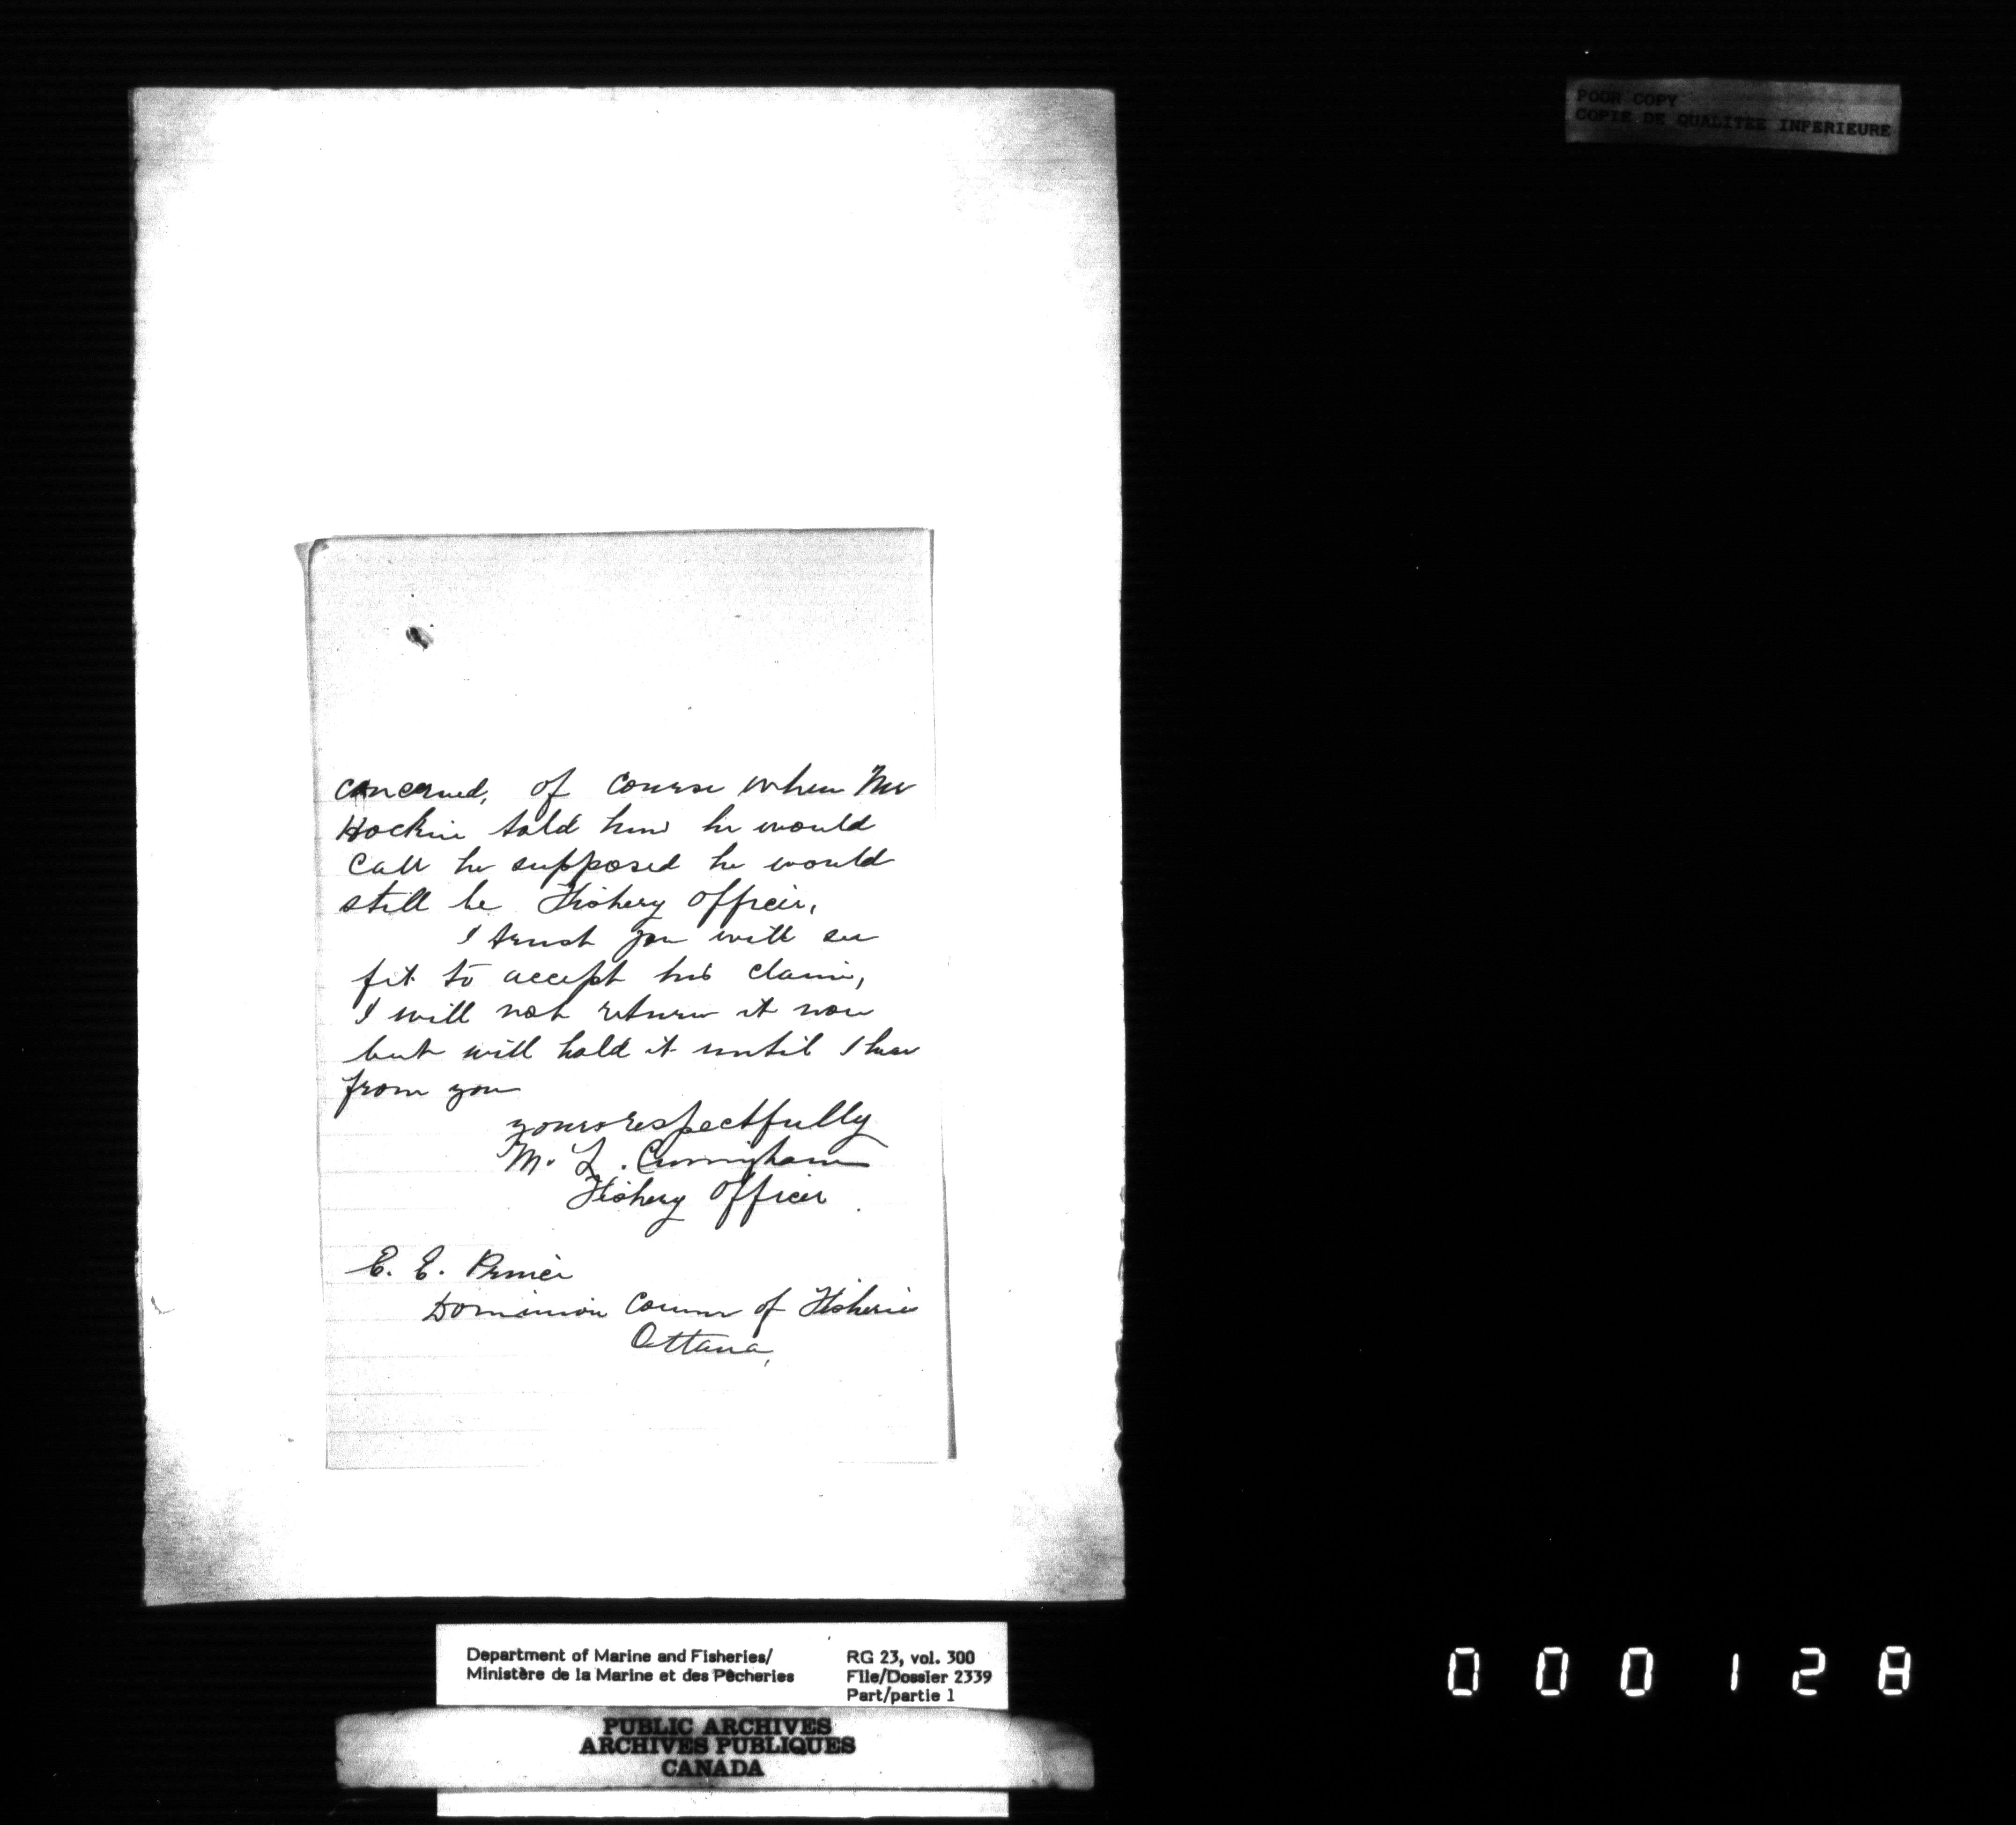 POOR COPY
COPIE DE QUALITEE INFERIEURE
concerned, of course when Mr
Hockin told him he would
call he supposed he would
still be Fishery Officer,
I trust you will see
fit to accept his claim,
I will not return it now
but will hold it until I hear
from you
yours respectfully
M. L. Cunningham
Fishery Officer
E. E. Prince
Dominion Comm of Fisheries
Ottawa,
Department of Marine and Fisheries/
Ministère de la Marine et des Pêcheries
RG 23, vol. 300
File/Dossier 2339
Part/partie 1
PUBLIC ARCHIVES
ARCHIVES PUBLIQUES
CANADA
000128